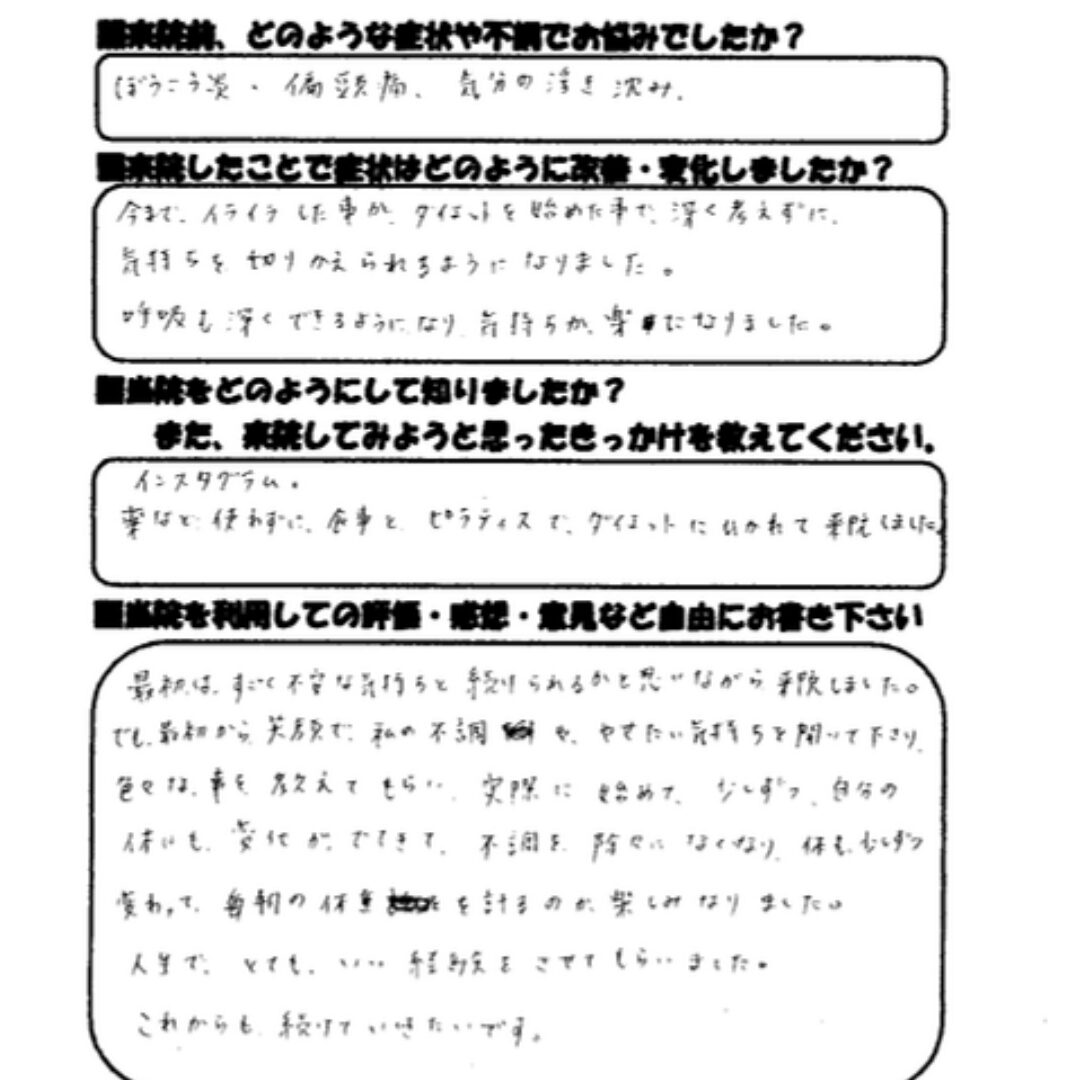 ■来院前、どのような症状や不調でお悩みでしたか？
ぼうこう炎・偏頭痛、気分の浮き沈み.
■来院したことで症状はどのように改善・変化しましたか？
今まで、イライラした事が、ダイエットを始めた事で、深く考えずに、
気持ちを切りかえられるようになりました。
呼吸も深くできるようになり、気持ちが、楽になりました。
■当院をどのようにして知りましたか？
また、来院してみようと思ったきっかけを教えてください。
インスタグラム。
薬など、使わずに、食事と、ピラティスで、ダイエットにひかれて来院しました。
■当院を利用しての評価・感想・意見など自由にお書き下さい
最初は、すごく不安な気持ちと続けられるかと思いながら来院しました。
でも、最初から、笑顔で、私の不調や、やせたい気持ちを聞いて下さり、
色々な、事を教えてもらい、実際に始めて、少しずつ、自分の
体にも、変化がでてきて、不調を除々になくなり、体も少しずつ
変わって、毎朝の体重を計るのが、楽しみなりました。
人生で、とても、いい経験をさせてもらいました。
これからも、続けていきたいです。